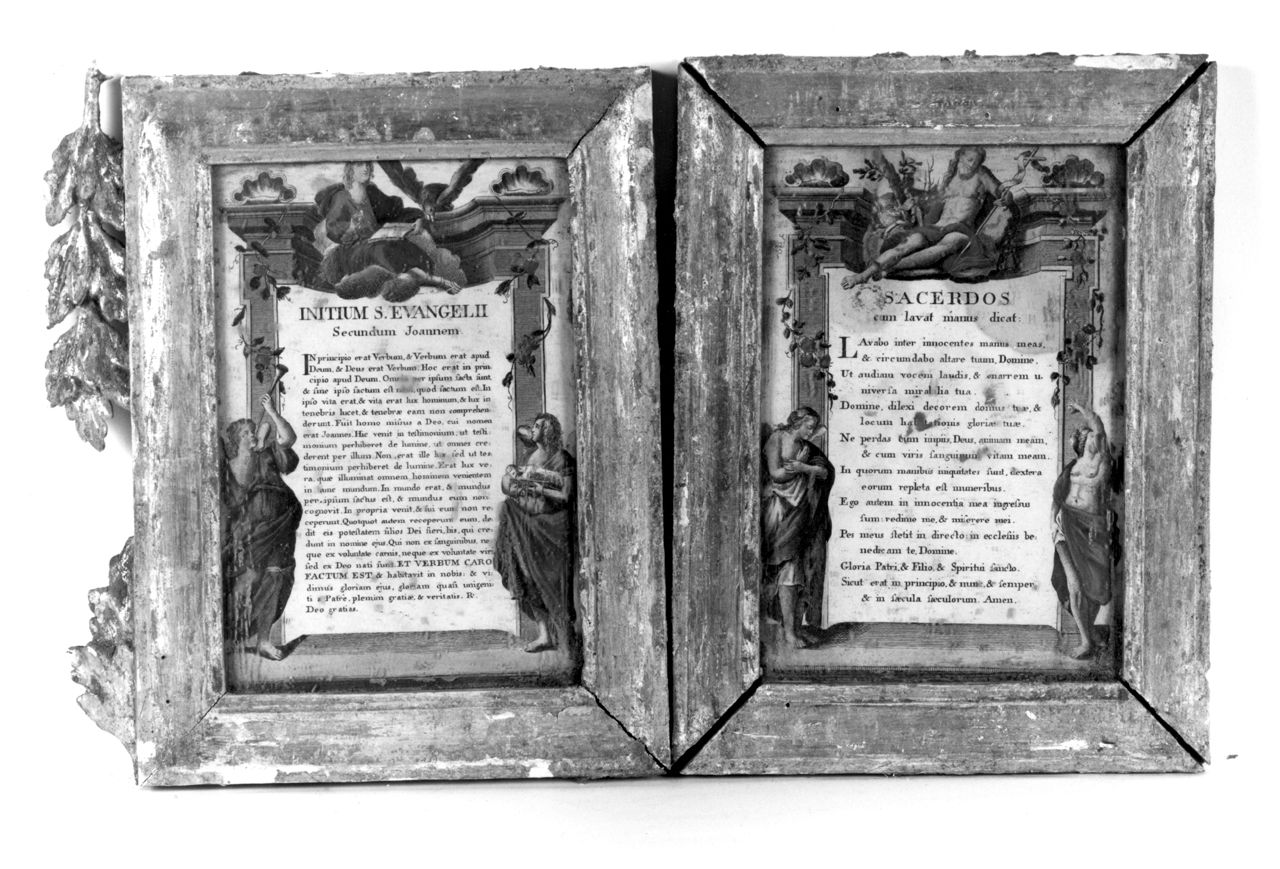 INITIUM S. EVANGELII
Secundum Joannem.
IN principio erat Verbum, & Verbum erat apud
Deum, & Deus erat Verbum. Hoc erat in prin-
cipio apud Deum. Omnia per ipsum facta sunt,
& sine ipso factum est nihil, quod factum est. In
ipso vita erat, & vita erat lux hominum, & lux in
tenebris lucet, & tenebræ eam non comprehen-
derunt. Fuit homo missus a Deo, cui nomen
erat Joannes. Hic venit in testimonium, ut testi-
monium perhiberet de lumine, ut omnes cre-
derent per illum. Non erat ille lux sed ut tes-
timonium perhiberet de lumine. Erat lux ve-
ra, quæ illuminat omnem hominem venientem
in hunc mundum. In mundo erat, & mundus
per ipsum factus est, & mundus eum non
cognovit. In propria venit, & sui eum non re-
ceperunt. Quotquot autem receperunt eum, de-
dit eis potestatem filios Dei fieri, his, qui cre-
dunt in nomine ejus. Qui non ex sanguinibus, ne-
que ex voluntate carnis, neque ex voluntate viri
sed ex Deo nati sunt. ET VERBUM CARO
FACTUM EST & habitavit in nobis: & vi-
dimus gloriam ejus, gloriam quasi unigeni-
ti a Patre, plenum gratiæ, & veritatis. ℟.
Deo gratias.
SACERDOS
cum lavat manus dicat:
LAvabo inter innocentes manus meas,
& circumdabo altare tuum, Domine.
Ut audiam vocem laudis, & enarrem u-
niversa mirabilia tua.
Domine, dilexi decorem domus tuæ, &
locum habitationis gloriæ tuæ.
Ne perdas cum impiis, Deus, animam meam,
& cum viris sanguinum vitam meam.
In quorum manibus iniquitates sunt, dextera
eorum repleta est muneribus.
Ego autem in innocentia mea ingressus
sum: redime me, & miserere mei.
Pes meus stetit in directo: in ecclesiis be-
nedicam te, Domine.
Gloria Patri, & Filio, & Spiritui sancto.
Sicut erat in principio, & nunc, & semper,
& in sæcula sæculorum. Amen.